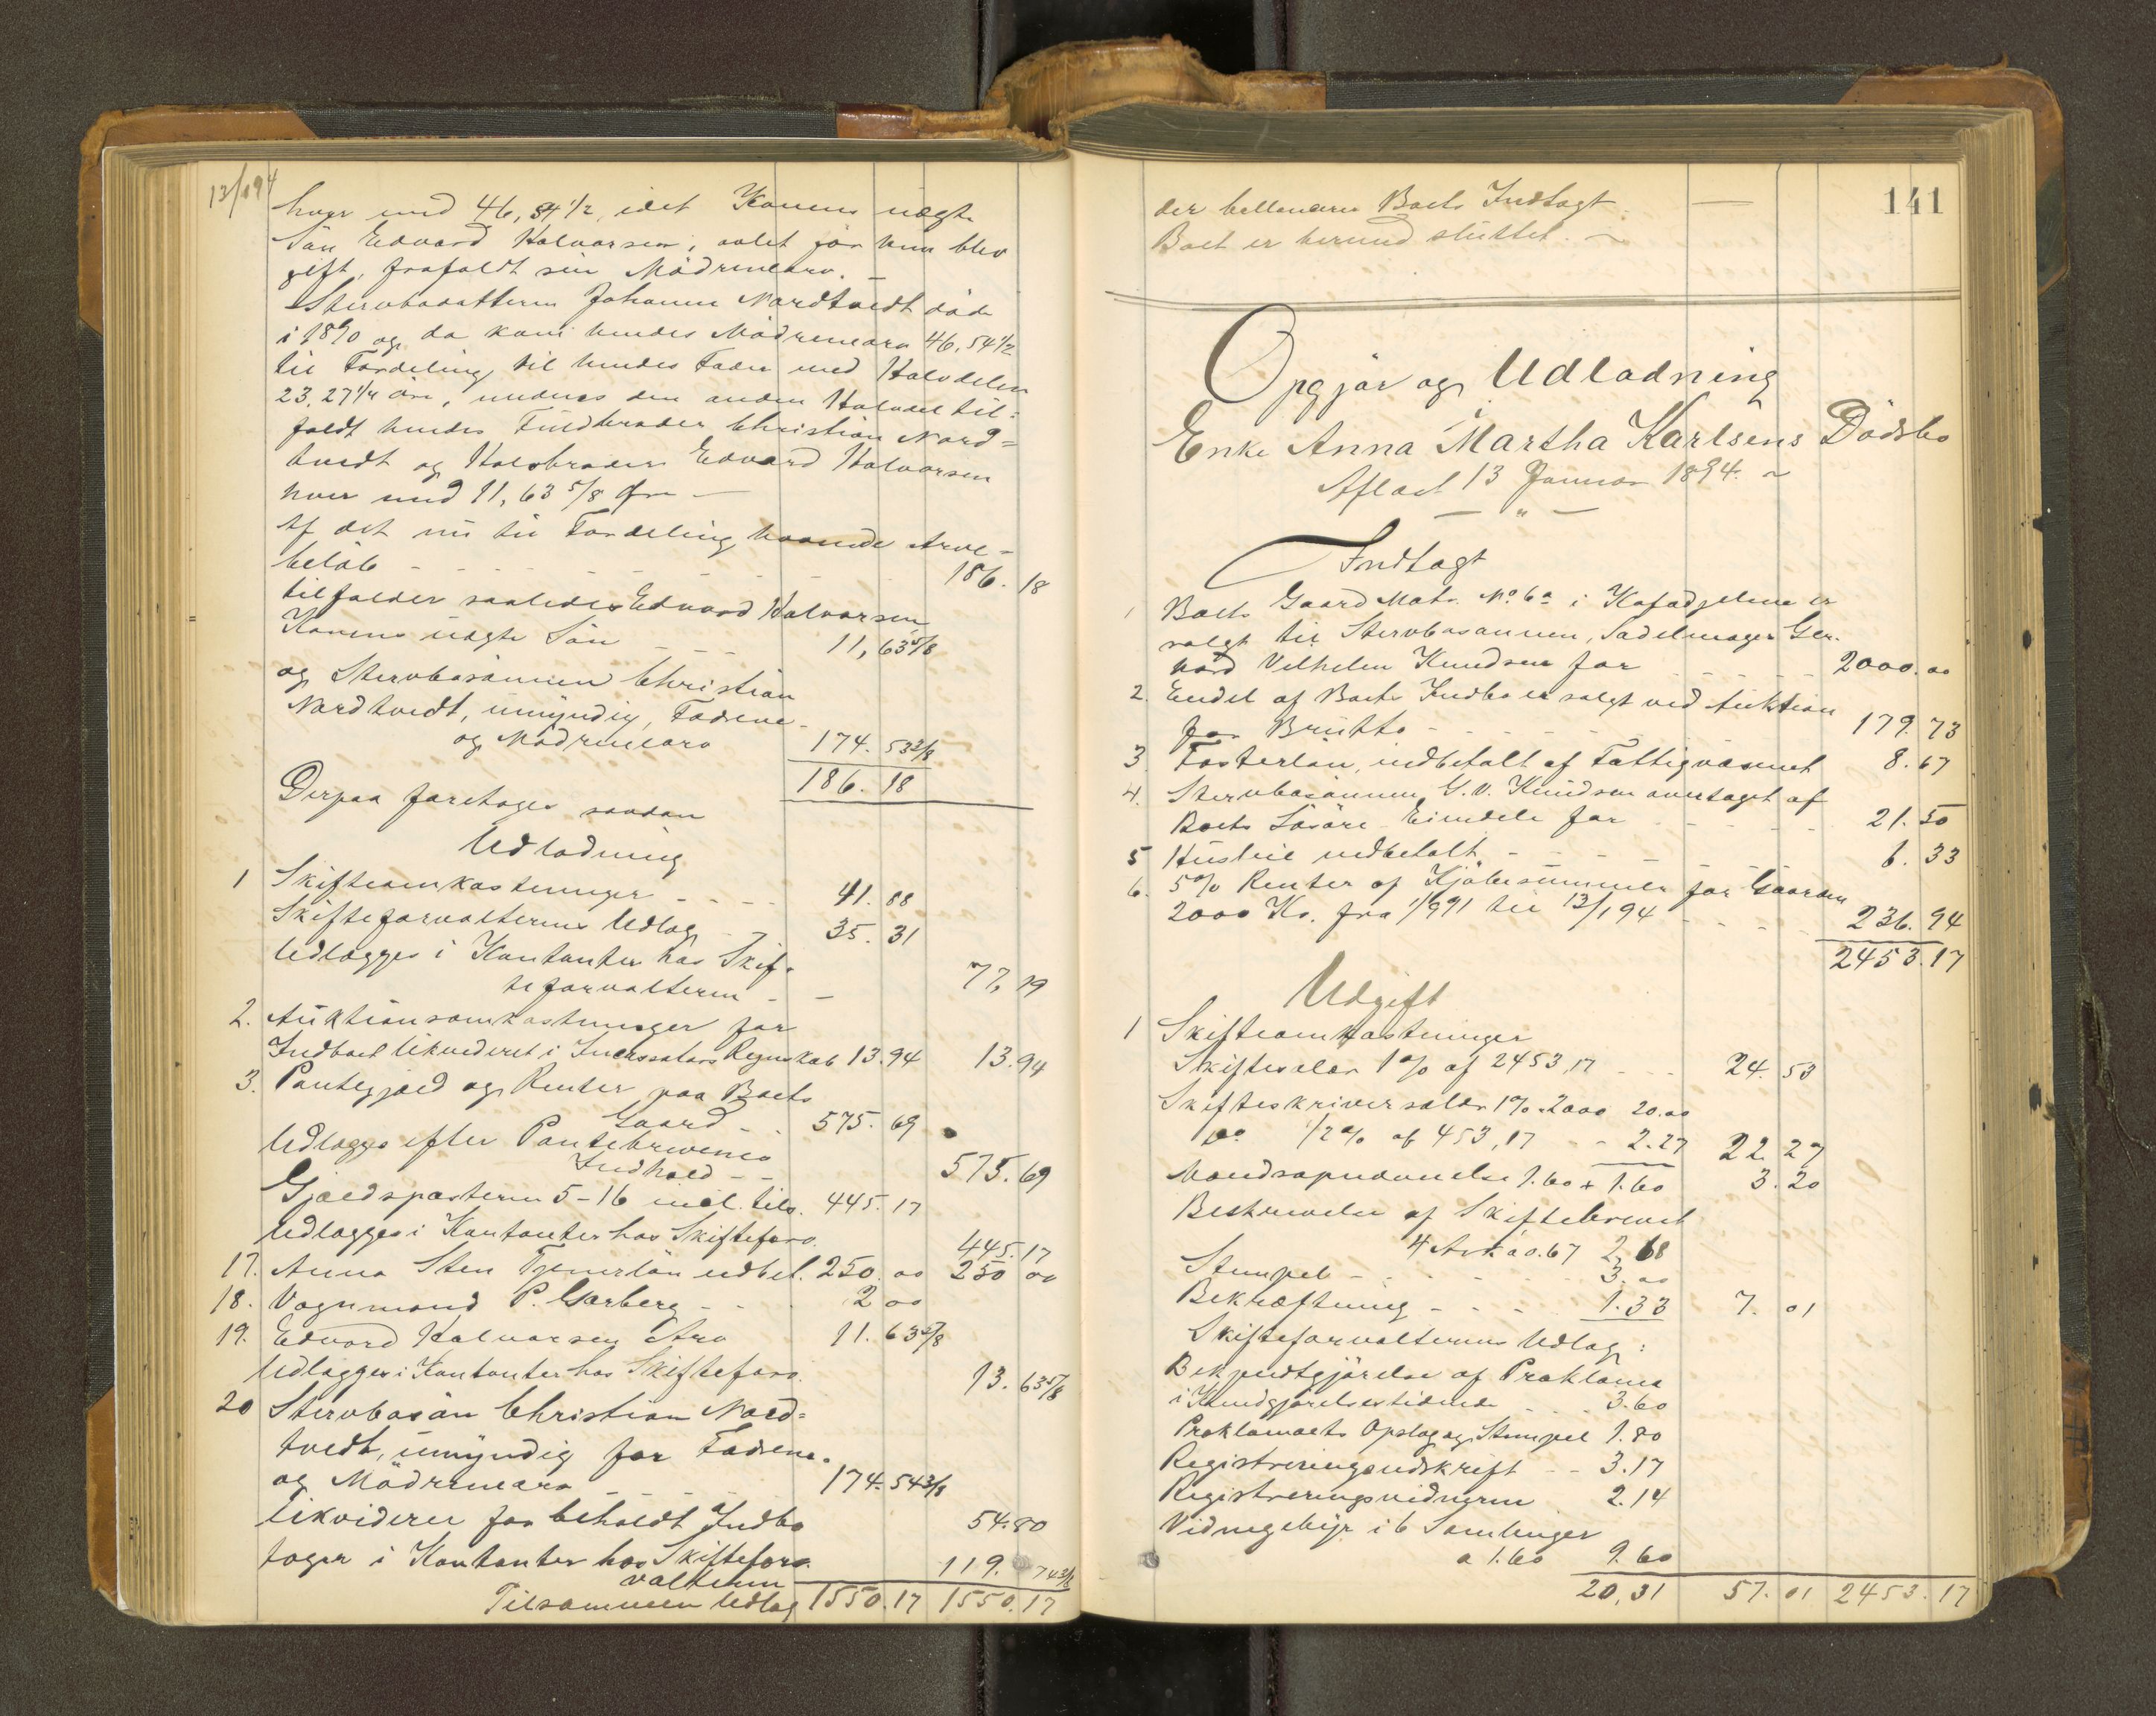 13/1 94
hver med 46,54 1/2, idet Konens uægte
Sön Edvard Halvorsen, avlet för hun blev
gift, frafaldt sin Mödrenearv. —
Stervbodatteren Johanne Nordtvedt döde
i 1890 og da kom hendes Mödrenearv 46,54 1/2
til Fordeling til hendes Fader med Halvdelen
23,27 1/4 öre, medens den anden Halvdel til=
faldt hendes Fuldbroder Christian Nord=
tvedt og Halvbroder Edvard Halvorsen
hver med 11,63 5/8 Øre —
Af det nu til Fordeling havende Arve-
beløb - - - - - 186. 18
tilfalder saaledes Edvard Halvorsen,
Konens uægte Sön - - - 11,63 5/8
og Stervbosönnen Christian
Nordtvedt, umyndig, Fædrene-
og Mödrenearv 174. 53 2/8
186. 18
Derpaa foretoges saadan
Udlodning
1 Skifteomkostninger - - - - 41. 88
Skifteforvalterens Udlæg - 35. 31
Udlægges i Kontanter hos Skif-
teforvalteren - - 77, 19
2. Auktionsomkostninger for
Indboet likvideret i Incassators Regnskab 13.94 13.94
3. Pantegjæld og Renter paa Boets
Gaard - - 575. 69
Udlægges efter Pantebrevenes
Indhold - - 575. 69
Gjældsposterne 5-16 incl. tils. 445. 17
Udlægges i Kontanter hos Skifteforv. 445. 17
17. Anna Sten Tjenerlön udbet. 250. 00 250 00
18. Vognmand P. Garberg - - 2 00
19. Edvard Halvorsen Arv 11. 63 5/8
Udlægges i Kontanter hos Skifteforv. 13. 63 5/8
20 Stervbosön Christian Nord=
tvedt, umyndig for Fædrene-
og Mödrenearv - - - - 174. 54 3/8
likviderer for beholdt Indbo 54. 80
tager i Kontanter hos Skiftefor-
valteren 119. 74 3/8
Tilsammen Udlæg 1550. 17 1550. 17
141
der ballancerer Boets Indtægt. —
Boet er hermed sluttet. —
Opgjör og Udlodning
Enke Anna Martha Karlsens Dödsbo
Aflagt 13 Januar 1894. —
— " —
Indtægt
1 Boets Gaard Matr. No 6a i er
solgt til Stervbosönnen, Sadelmager Ger-
hard Vilhelm Knudsen for - - - - 2000. 00
2. Endel af Boets Indbo er solgt ved Auktion
for Brutto - - - - - 179. 73
3. Fosterlön, indbetalt af Fattigvæsenet 8. 67
4. Stervbosönnen G. V. Knudsen overtaget af
Boets Lösöre Eiendele for - - - - 21. 50
5 Husleie indbetalt - - - - - 6. 33
6. 5% Renter af Kjöbesummen for Gaarden
2000 Kr. fra 1/9 91 til 13/1 94 - - - 236. 94
2453. 17
Udgift
1 Skifteomkostninger
Skiftesalær 1% af 2453,17 - - 24. 53
Skifteskriversalær 1% 2000 20.00
Do 1/2% af 453,17 - - 2.27 22. 27
Mandsopnævnelse 1.60 + 1.60 3. 20
Beskrivelse af Skiftebrevet
4 Ark à 0.67 2,68
Stempel - - - - - 3.00
Bekræftning - - - - 1.33 7. 01
Skifteforvalterens Udlæg:
Bekjendtgjörelse af Proklama
i Kundgjörelsestidende - - 3.60
Proklamaets Opslag og Stempel 1.80
Registreringsudskrift - - 3.17
Registreringsvidnerne 2.14
Vidnegebyr i 6 Samlinger
a 1.60 9.60
20,31 57. 01 2453. 17